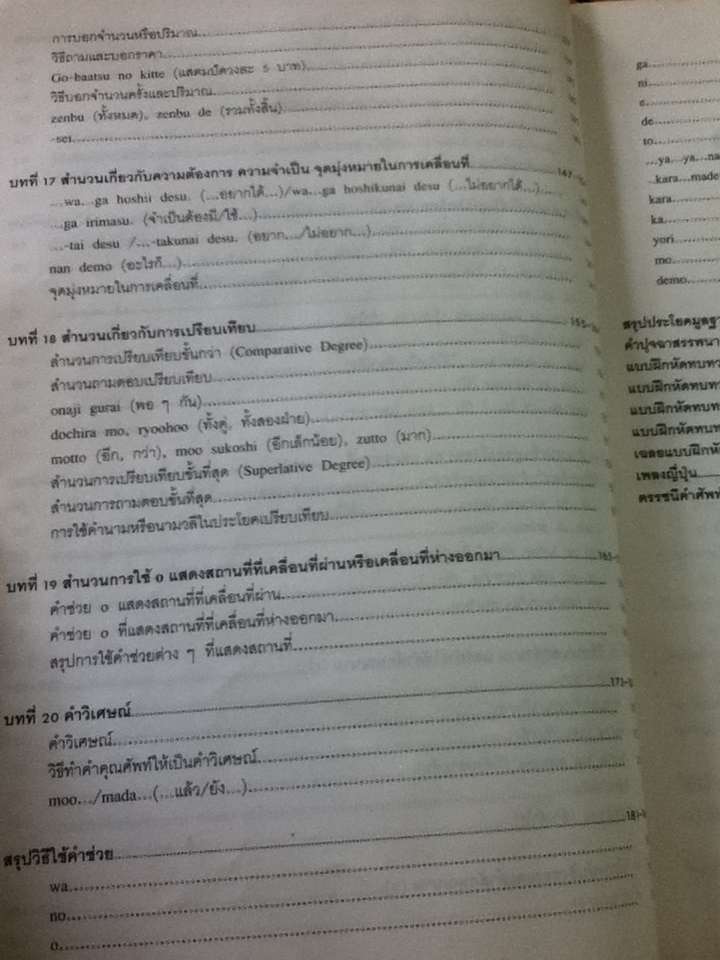 การบอกจำนวนหรือปริมาณ
วิธีถามและบอกราคา
Go-baatsu no kitte (แสตมป์ดวงละ 5 บาท)
วิธีบอกจำนวนครั้งและปริมาณ
zenbu (ทั้งหมด), zenbu de (รวมทั้งสิ้น)
-sei
บทที่ 17 สำนวนเกี่ยวกับความต้องการ ความจำเป็น จุดมุ่งหมายในการเคลื่อนที่
...wa...ga hoshii desu. (...อยากได้...)/wa...ga hoshikunai desu (...ไม่อยากได้...)
...ga irimasu. (จำเป็นต้องมี/ใช้...)
...-tai desu /...-takunai desu. (อยาก.../ไม่อยาก...)
nan demo (อะไรก็...)
จุดมุ่งหมายในการเคลื่อนที่
บทที่ 18 สำนวนเกี่ยวกับการเปรียบเทียบ
สำนวนการเปรียบเทียบขั้นกว่า (Comparative Degree)
สำนวนถามตอบเปรียบเทียบ
onaji gurai (พอ ๆ กัน)
dochira mo, ryoohoo (ทั้งคู่, ทั้งสองฝ่าย)
motto (อีก, กว่า), moo sukoshi (อีกเล็กน้อย), zutto (มาก)
สำนวนการเปรียบเทียบขั้นที่สุด (Superlative Degree)
สำนวนการถามตอบขั้นที่สุด
การใช้คำนามหรือนามวลีในประโยคเปรียบเทียบ
บทที่ 19 สำนวนการใช้ o แสดงสถานที่ที่เคลื่อนที่ผ่านหรือเคลื่อนที่ห่างออกมา
คำช่วย o แสดงสถานที่ที่เคลื่อนที่ผ่าน
คำช่วย o ที่แสดงสถานที่ที่เคลื่อนที่ห่างออกมา
สรุปการใช้คำช่วยต่าง ๆ ที่แสดงสถานที่
บทที่ 20 คำวิเศษณ์
คำวิเศษณ์
วิธีทำคำคุณศัพท์ให้เป็นคำวิเศษณ์
moo.../mada...(...แล้ว/ยัง...)
สรุปวิธีใช้คำช่วย
wa
no
o
ga
ni
e
de
to
...ya...ya...na
..kara...made
kara
ka
yori
mo
demo
สรุปประโยคมูลฐา
คำปุจฉาสรรพนา
แบบฝึกหัดทบทว
แบบฝึกหัดทบท
แบบฝึกหัดทบท
แบบฝึกหัดทบท
เฉลยแบบฝึกหั
เพลงญี่ปุ่น
ดรรชนีคำศัพท์